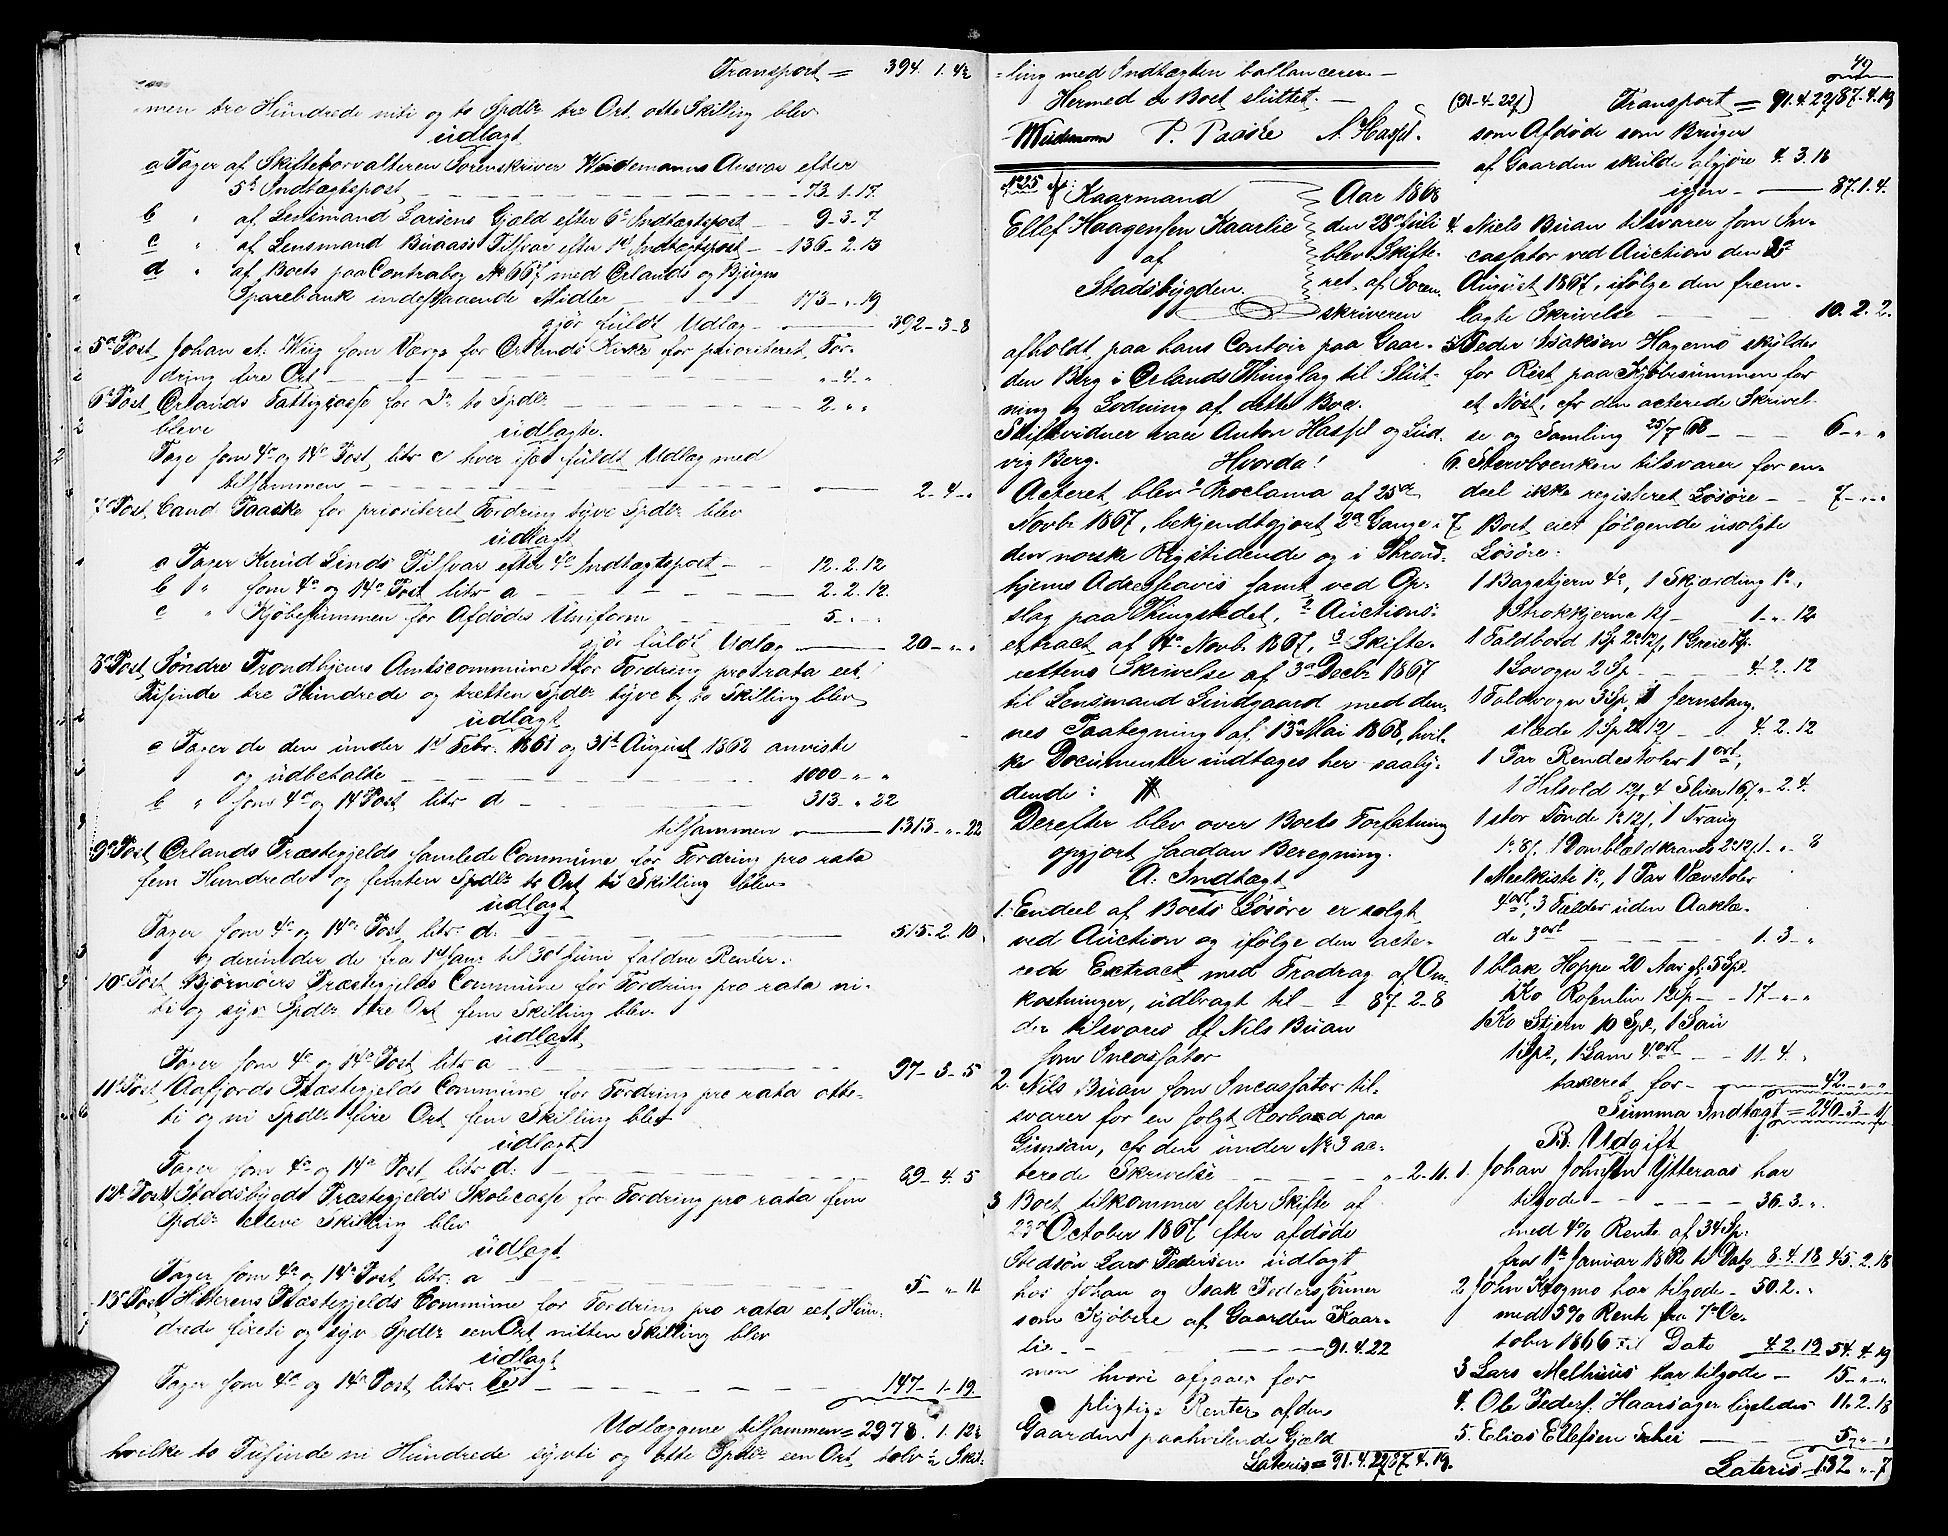 Transport = 394. 1. 4½
men tre Hundrede niti og to Spdlr tre Ort otte Skilling blev
udlagt
a Tager af Skifteforvalteren Sorenskriver Weidemanns Ansvar efter
5te Indtægtspost, 73. 1. 17.
b " af Lensmand Larsens Gjæld efter 6te Indtægtspost 9 - 3 - 7
c " af Lensmand Buaas's Tilsvar efter 1ste Indtægtspost 136 - 2. 13
d " af Boets paa Contrabog No 667 med Ørlands og Bjugns
Sparebank indestaaende Midler 173 - " 19
gjør fuldt Udlag 392 - 3 - 8
5te Post, Johan A. Wiig som Værge for Ørlands Kirke for prioriteret For-
dring fire Ort " 4. "
6te Post, Ørlands Fattigcasse for Do to Spdlr 2. " "
bleve udlagte.
Tage som 4de og 14de Post, litr c hver især fuldt Udlæg med
tilsammen 2 - 4 - "
7de Post, Cand Paaske for prioriteret Fordring tyve Spdlr blev
udlagt
a Tager Knud Linds Tilsvar efter 4de Indtægtspost 12. 2. 12
b " som 4de og 14de Post litr a 2. 2. 12.
c " Kjøbesummen for Afdødes Uniform 5 " "
gjør fuldt Udlæg 20 - " "
8de Post, Søndre Trondhjems Amtscommune for Fordring pro rata eet
Tusinde tre Hundrede og tretten Spdlr tyve og to Skilling blev
udlagt
a Tager de den under 1ste Febr. 1861 og 31te August 1862 anviste
og udbetalte 1000 - " "
b " som 4de og 14 Post, litr d 313 - " 22
tilsammen 1313 - " 22
9de Post, Ørlands Præstegjelds samlede Commune for Fordring pro rata
fem Hundrede og femten Spdlr to Ort ti Skilling blev
udlagt
Tager som 4de og 14de Post, litr d. 515. 2. 10.
og derunder de fra 1ste Janr til 30te Juni faldne Renter.
10de Post, Bjørnørs Præstegjelds Commune for Fordring pro rata ni-
ti og syv Spdlr tre Ort fem Skilling blev
udlagt
Tager som 4de og 14de Post, litr a 97 - 3 - 5
11te Post, Aafjords Præstegjelds Commune for Fordring pro rata otte-
ti og ni Spdlr fire Ort fem Skilling blev
udlagt
Tager som 4de og 14de Post, litr d. 89 - 4. 5
12te Post, Stadsbygds Præstegjelds Skolecasse for Fordring pro rata fem
Spdlr elleve Skilling blev
udlagt
Tager som 4de og 14de Post, litr: a 5 - " 11
13de Post, Hitterens Præstegjelds Commune for Fordring pro rata eet Hun-
drede firti og syv Spdlr een Ort nitten Skilling blev
udlagt
Tager som 4de og 14de Post, litr. 147 - 1 - 19
Udlæggene tilsammen = 2978. 1. 12½
hvilke to Tusinde ni Hundrede sytti og otte Spdlr een Ort tolv ½ Skil-
=ling med Indtægten ballancerer. -
Hermed er Boet sluttet. -
Weidemann P. Paaske A. Hassel.
No 25 Kaarmand
Ellef Haagensen Kaarlie
af
Stadsbygden.
Aar 1868
den 28de Juli
blev Skifte-
ret af Soren-
skriveren
afholdt paa hans Contoir paa Gaar-
den Berg i Ørlands Thinglag til Slut-
ning og Lodning af dette Boe.
Skiftevidner vare Anton Hassel og Lud-
vig Berg. Hvorda!
Acteret blev 1 Proclama af 25de
Novbr 1867, bekjendtgjort 2de Gange i
den norske Rigstidende og i Thrond-
hjems Adresseavis samt ved Op-
slag paa Thingstedet, 2 Auctions-
extract af 11te Novbr 1867, 3 Skifte-
rettens Skrivelse af 3de Decbr 1867
til Lensmand Lindgaard med den-
nes Paategning af 13de Mai 1868, hvil-
ke Documenter indtages her saaly-
dende:
Derefter blev over Boets Forfatning
opgjort saadan Beregning.
A: Indtægt
1. Endeel af Boets Løsøre er solgt
ved Auction og ifølge den acte-
rede Extract med Fradrag af Om-
kostninger, udbragt til 87 - 2 - 8
der tilsvares af Nils Buan
som Incassator
2. Nils Buan som Incassator til-
svarer for en solgt Rorbaad paa
Gimsan, cfr den under No 3 ac-
terede Skrivelse " 2 - 11.
3 Boet tilkommer efter Skifte af
23de October 1867 efter afdøde
Stedsøn Lars Pedersen udlagt
hos Johan og Isak Pedersønner
som Kjøbere af Gaarden Kaar-
lie 91. 4. 22
men hvori afgaar for
pligtige Renter af den
Gaarden paahvilende Gjæld
Lateris = 91. 4. 22 / 87. 4. 19.
49
(91-4-22) Transport = 91. 4. 22 / 87. 4. 19
som Afdøde som Bruger
af Gaarden skulde afgjøre 4. 3. 18
igjen - 87. 1. 4.
4. Niels Buan tilsvarer som In-
cassator ved Auction den 2de
August 1867, ifølge den frem-
lagte Skrivelse 10. 2. 2.
5 Peder Isaksen Hagemo skylder
for Rest paa Kjøbesummen for
et Nøst, cfr den acterede Skrivel-
se og Samling 25/7 68 6 - " "
6. Stervboenken tilsvarer for en-
deel ikke registeret Løsøre 7 - " "
7 Boet eier følgende usolgte
Løsøre:
1 Bagstjern 4s, 1 Skjærding 1s,
1 Strokkjerne 12s 1 - " 12
1 Faldbord 1 Sp. 2o 12s, 1 Greie
1 Lovogn 2 Sp 4. 2. 12
1 Faldvogn 3 Sp, 1 Jernstang-
slæde 1 Sp 2o 12s 4. 2. 12
1 Par Rendestoler 1 ort,
1 Hilsold 12s, 4 16s " 2. 4.
1 stor Tønde 1o 12s, 1 Traug
1o 8s. 1 1 . " 8
1 Meelkiste 1o, 1 Par Vævstoler
4 ort, 3 Fælder uden Aaklæ-
de 3 ort 1. 3 - "
1 blak Hoppe 20 Aar gl. 5 Spl.
1 Ko Rosenlin 12 Sp 17 - " "
1 Ko Stjern 10 Spl, 1 Sau
1 Spl, 1 Lam 4 ort 11. 4. "
taxeret for 42 - " "
Summa Indtægt = 240 - 3 -
B: Udgift
1. Johan Johnsen Ytteraas har
tilgode 36. 3. "
med 4% Rente af 34 Sp.
fra 1ste Januar 1862 til Dato 8. 4. 18 45. 2. 18
2 John Krogmo har tilgode 50. 2. "
med 5% Rente fra 7de Oc-
tober 1866 til Dato 4. 2. 19 54. 4. 19
3 Lars Melhuus har tilgode 15 - " "
4. Ole Peders. Haarsager ligeledes 11. 2. 18
5. Elias Ellefsen Schei 5 " "
Lateris 132 " 7